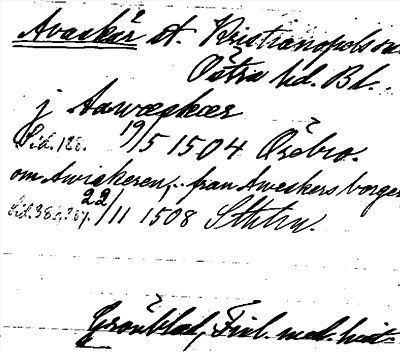 Avaskär st. Kristianopels sn.
Östra hd. Bl.
j Aawæskær
Sid. 128. 19/5 1504 Örebro.
om Awiskeren, från Aweskers borger
22/11 1508 Sthlm.
Grönblad, Finl. med. hist.